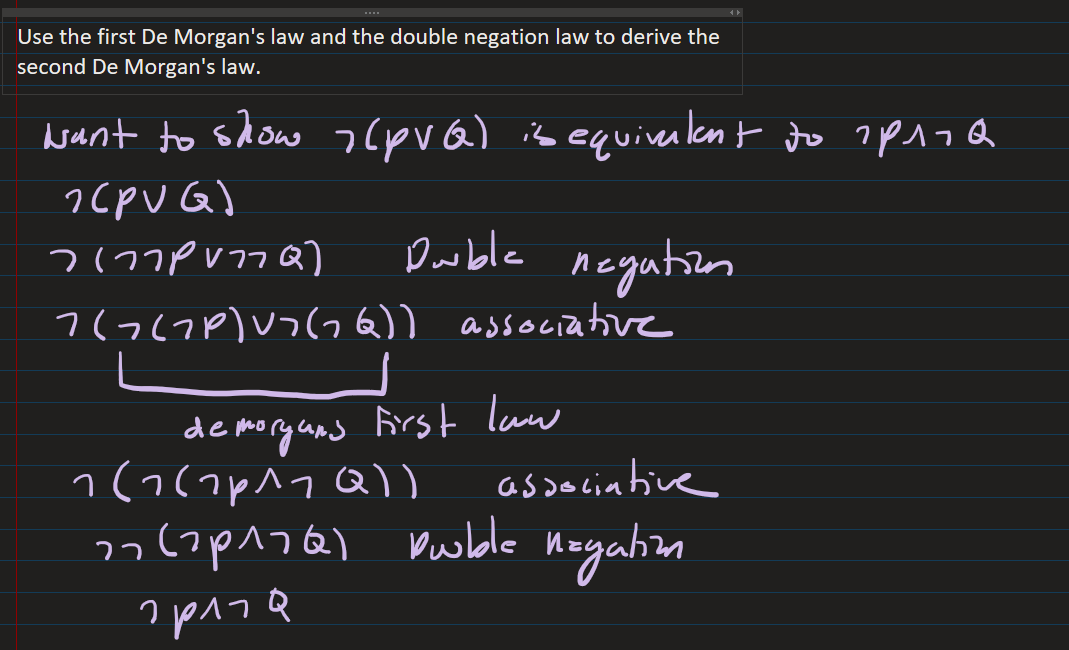 Use the first De Morgan's law and the double negation law to derive the
second De Morgan's law.
Want to show ¬(P∨Q) is equivalent to ¬P∧¬Q
¬(P∨Q)
¬(¬¬P∨¬¬Q) Double negation
¬(¬(¬P)∨¬(¬Q)) associative
demorgans First law
¬(¬(¬P∧¬Q)) associative
¬¬(¬P∧¬Q) Double Negation
¬P∧¬Q